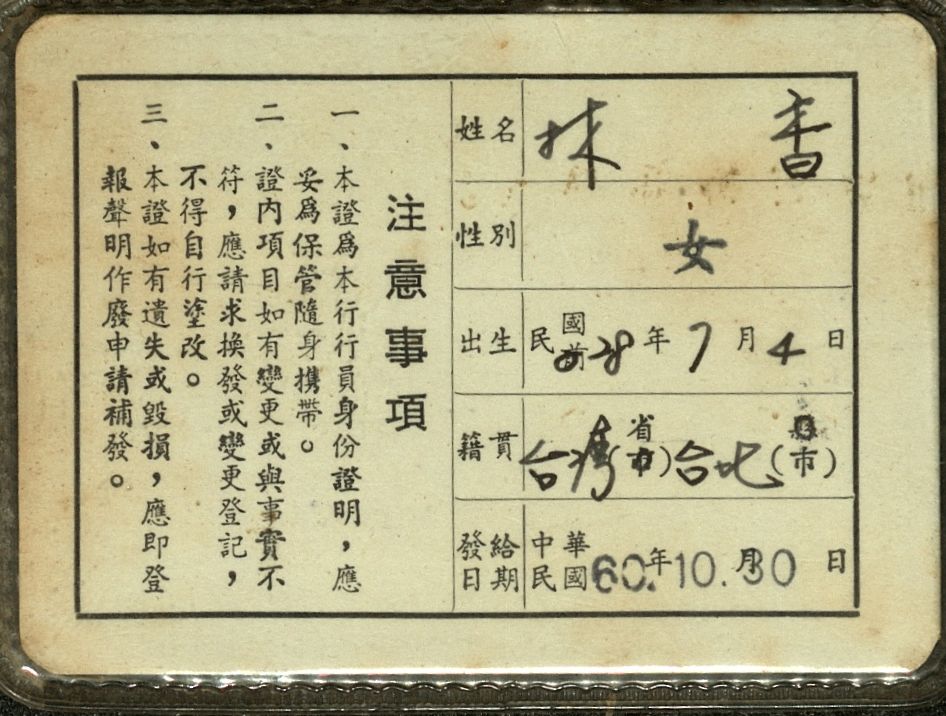 姓名 林 香
性別 女
出生 民國前28年7月4日
籍貫 台灣省(市)台北(縣市)
發給日期 中華民國60.年10.月30日
注意事項
一、本證爲本行行員身份證明，應
妥爲保管隨身携帶。
二、證內項目如有變更或與事實不
符，應請求換發或變更登記，
不得自行塗改。
三、本證如有遺失或毀損，應即登
報聲明作廢申請補發。